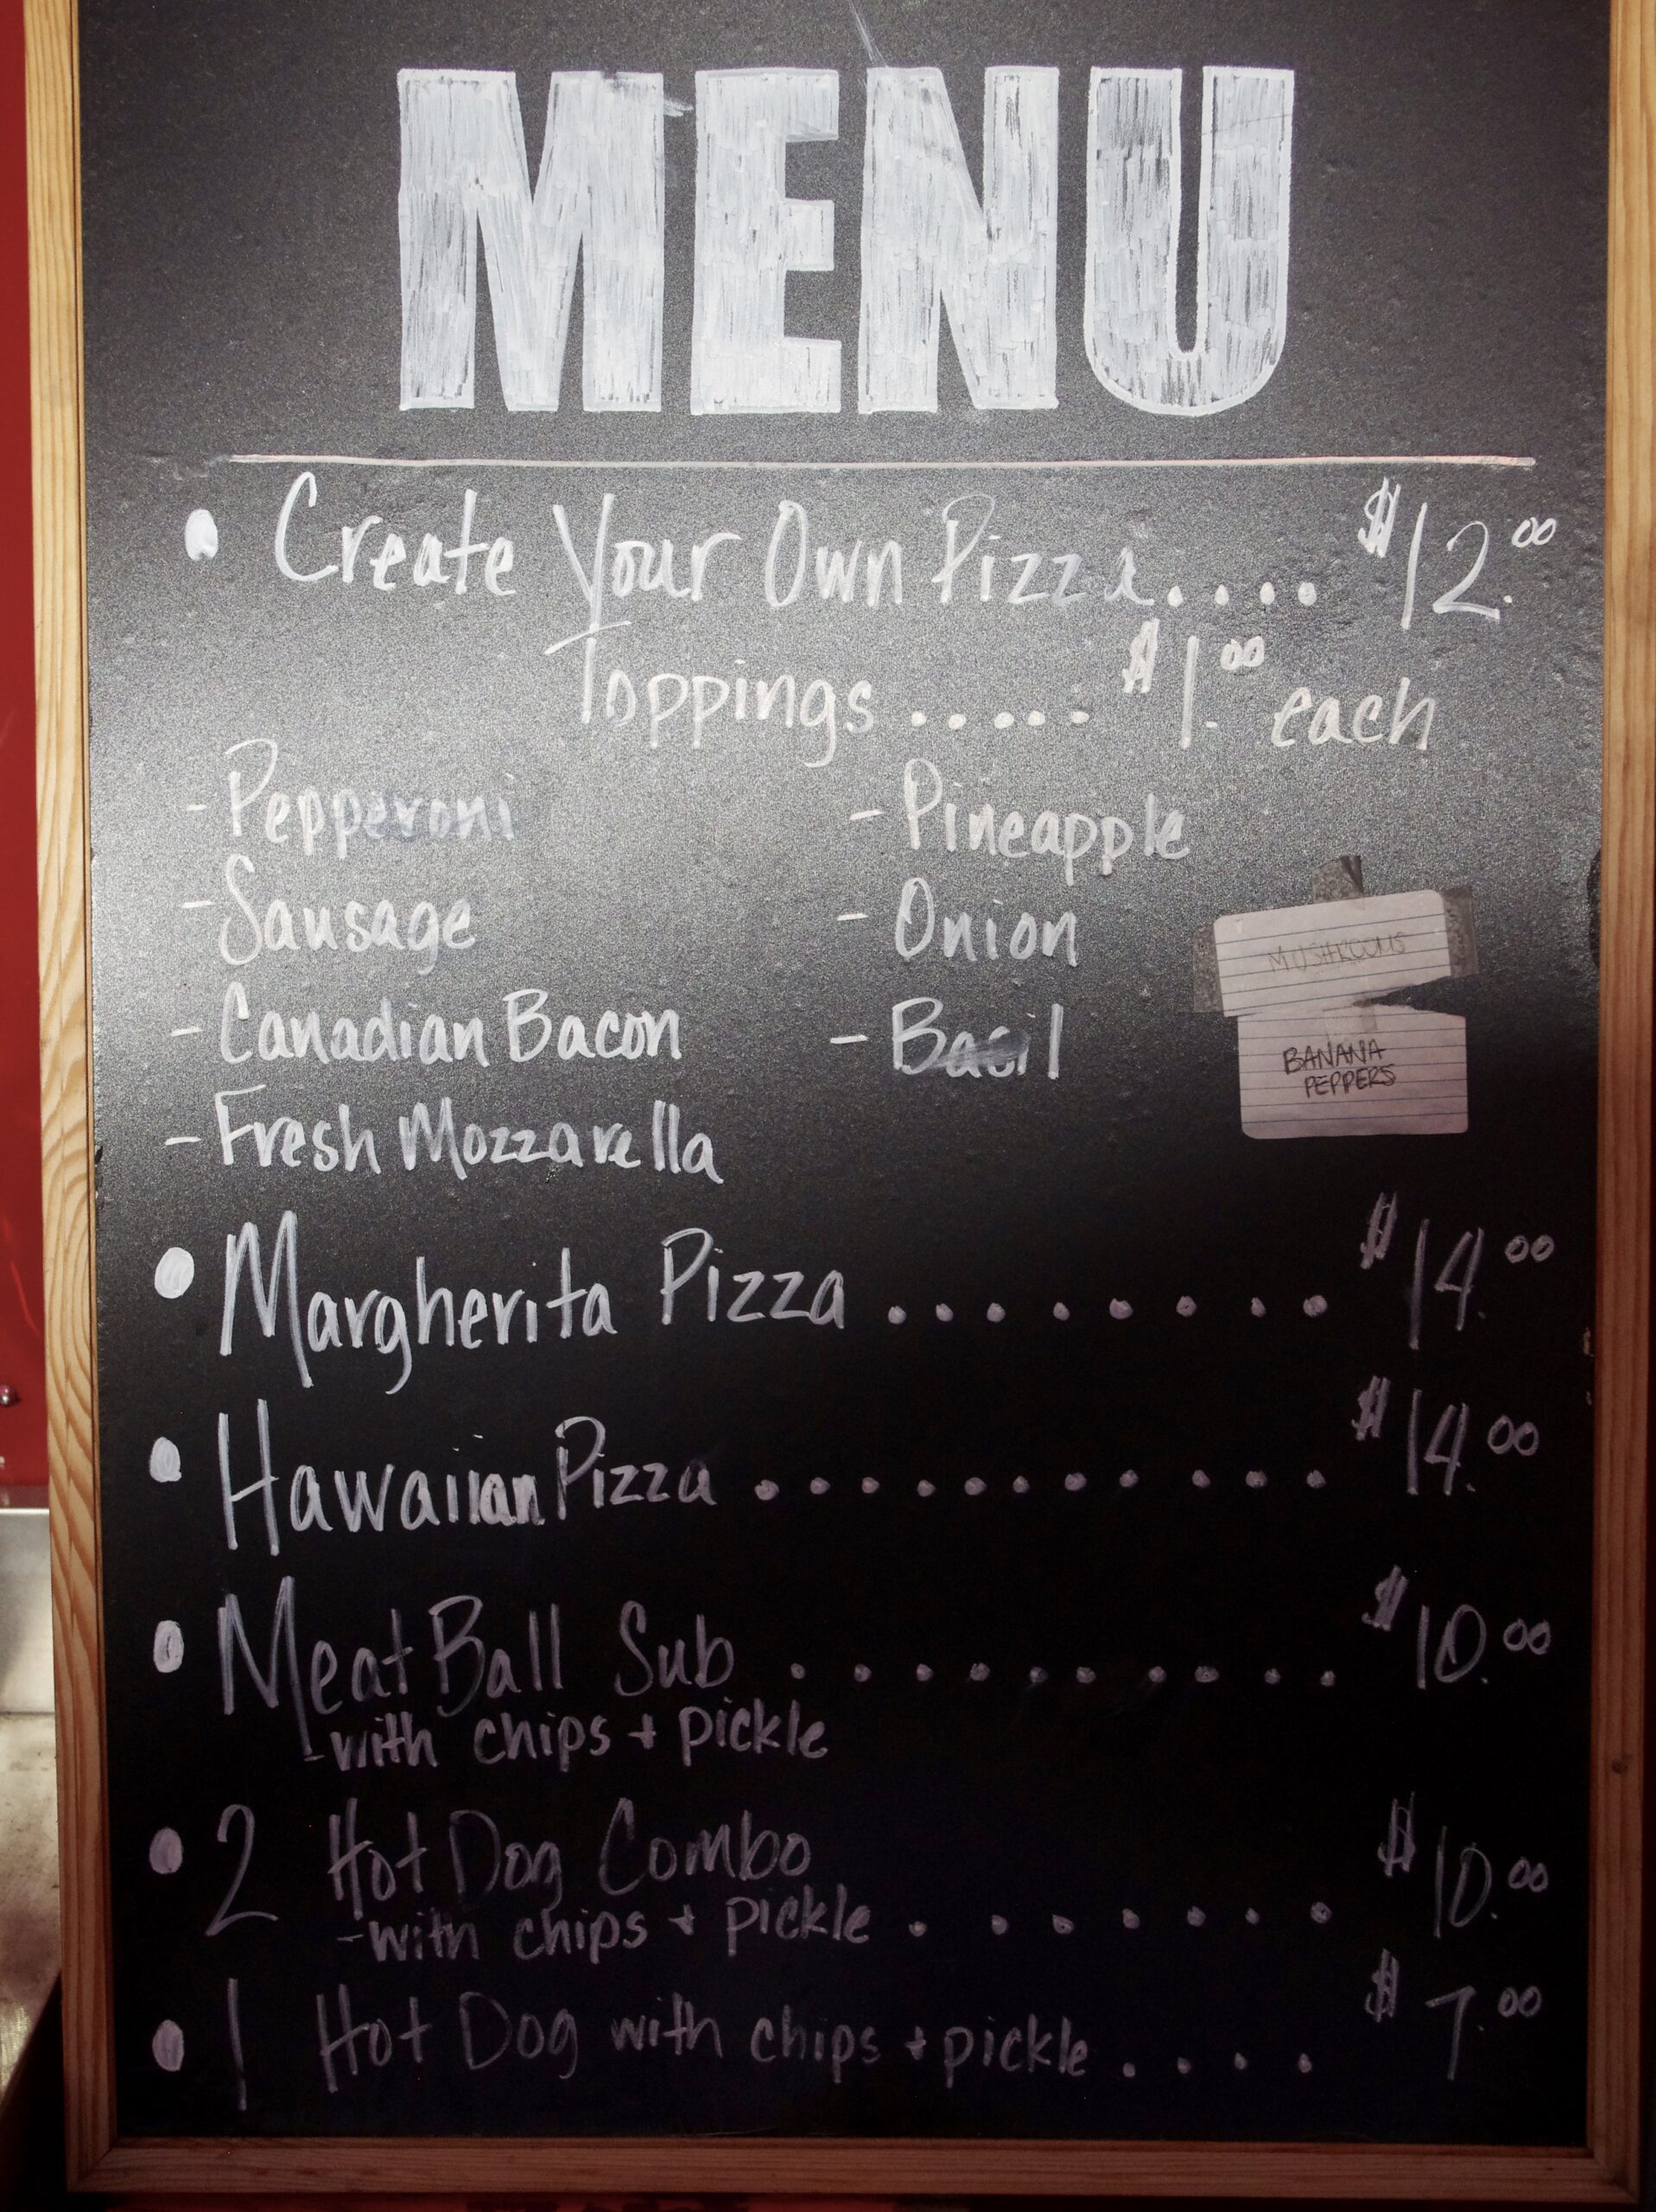 MENU
• Create Your Own Pizza.... $12.00
Toppings ..... $1.00 each
- Pepperoni
- Sausage
- Canadian Bacon
- Fresh Mozzarella
- Pineapple
- Onion
- Basil
MUSHROOMS
BANANA
PEPPERS
• Margherita Pizza ........ $14.00
• Hawaiian Pizza ........... $14.00
• Meat Ball Sub .......... $10.00
-with chips + pickle
• 2 Hot Dog Combo
-with chips + pickle ....... $10.00
• 1 Hot Dog with chips + pickle .... $7.00